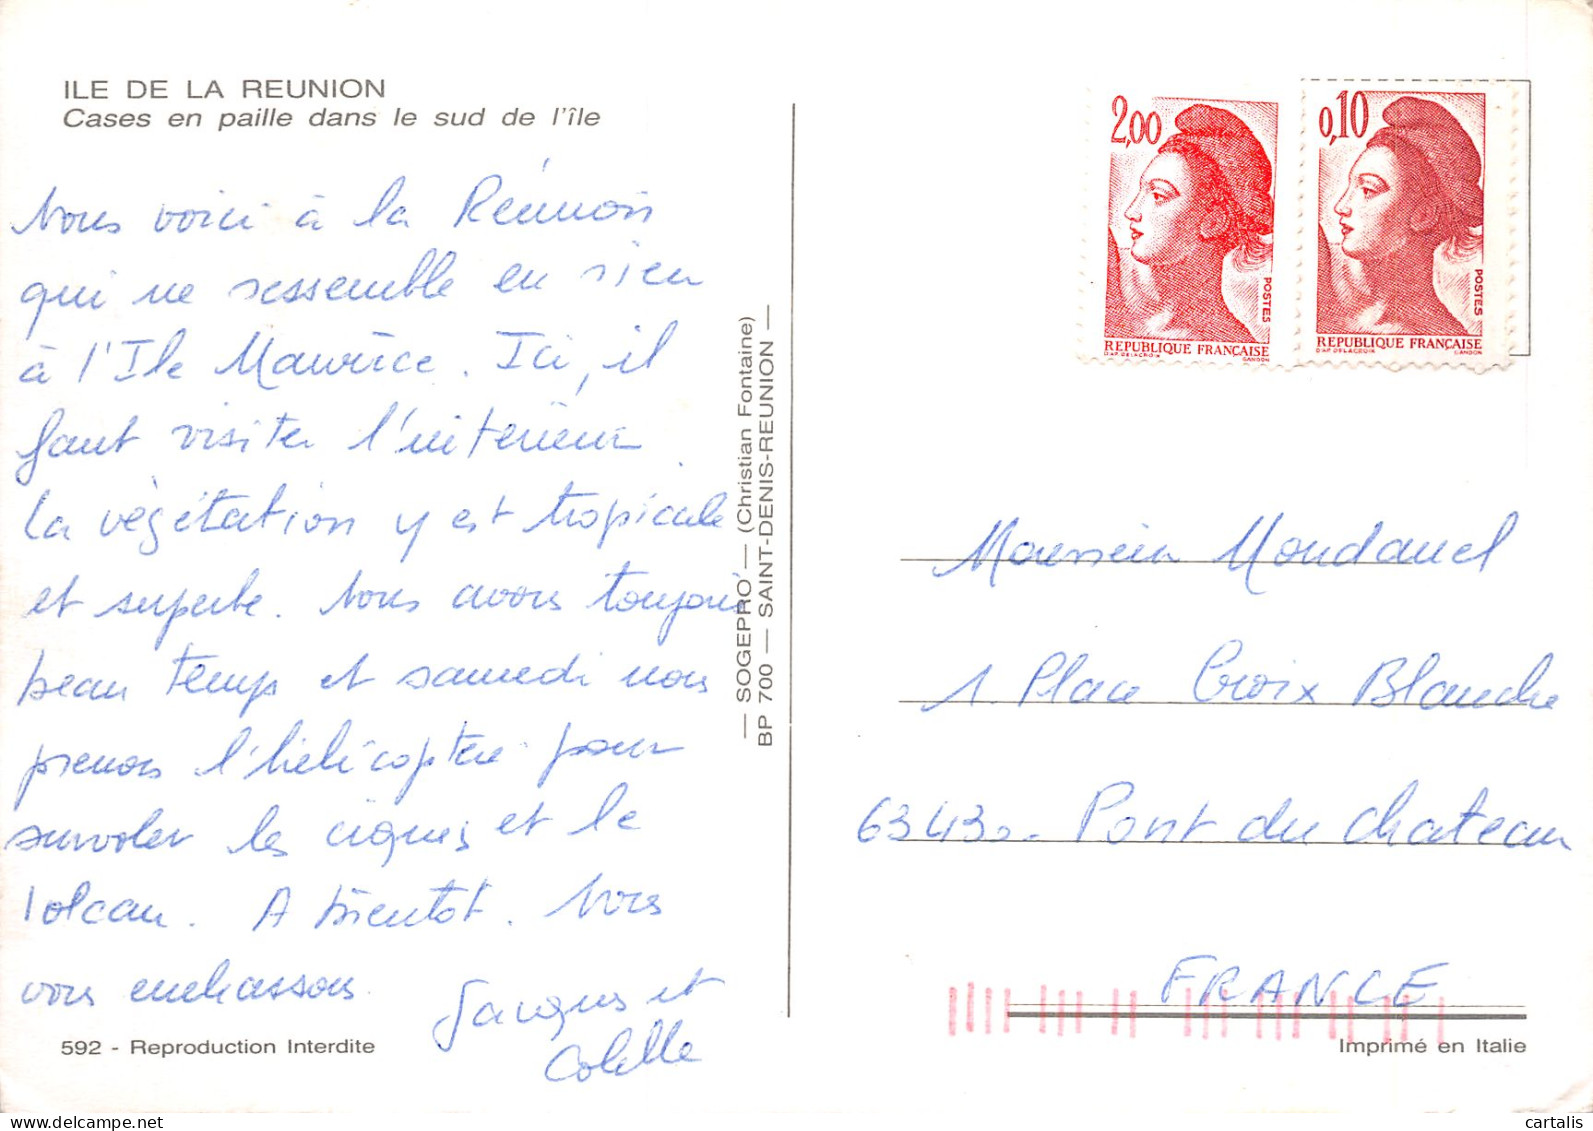 ILE DE LA REUNION
Cases en paille dans le sud de l'île
Nous voici à la Réunion
qui ne ressemble en rien
à l'Ile Maurice. Ici, il
faut visiter l'intérieur.
La végétation y est tropicale
et superbe. Nous avons toujours
beau temps et samedi nous
prenons l'hélicoptère pour
survoler les cirques et le
volcan. A bientôt. Nous
vous embrassons.
Jacques et
Colette
592 - Reproduction Interdite
— SOGEPRO — (Christian Fontaine)
BP 700 — SAINT-DENIS-REUNION —
2,00
POSTES
REPUBLIQUE FRANÇAISE
D'AP. DELACROIX GANDON
0,10
POSTES
REPUBLIQUE FRANÇAISE
D'AP. DELACROIX GANDON
Monsieur Mondanel
1. Place Croix Blanche
63430. Pont du Chateau
FRANCE
Imprimé en Italie
cartalis